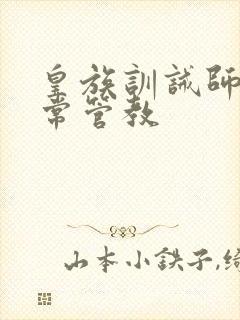 皇族訓誡師
常管教
山本小鉄子,綺